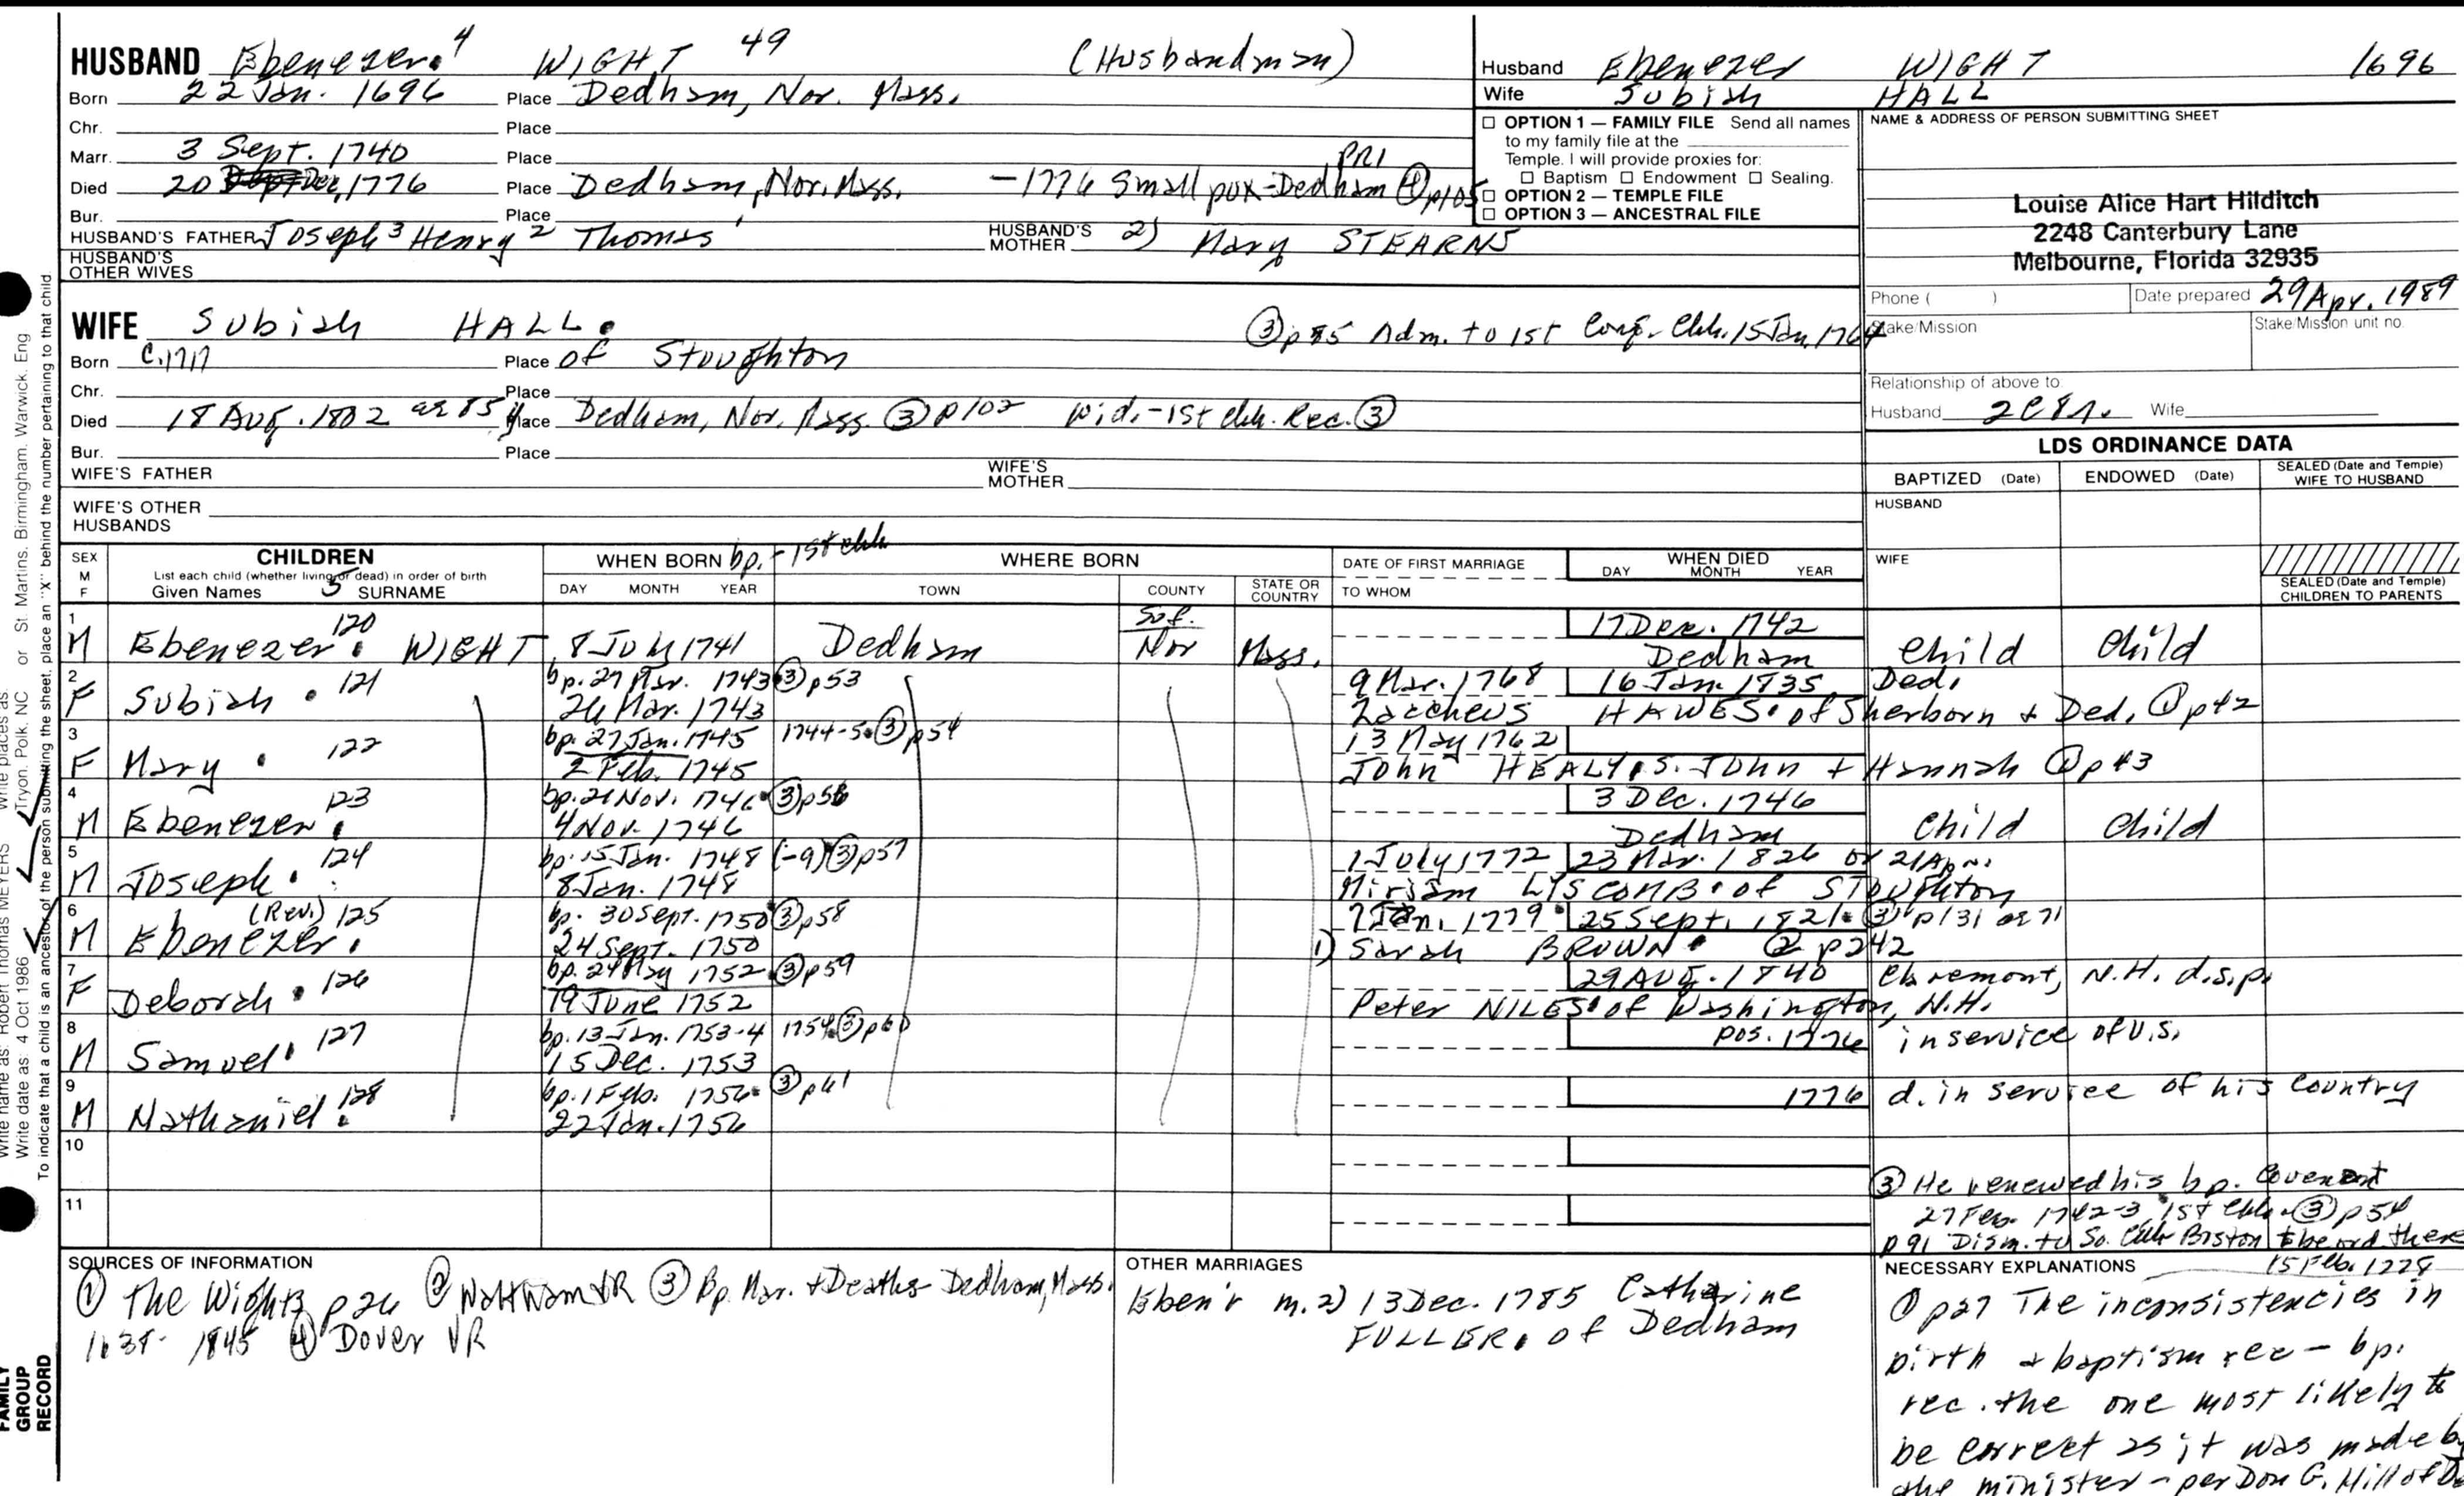 HUSBAND Ebenezer. 4 WIGHT 49 (Husbandman)
Born 22 Jan. 1696 Place Dedham, Nor. Mass.
Chr. Place
Marr. 3 Sept. 1740 Place
Died 20 Dec, 1776 Place Dedham, Nor. Mass. - 1776 Small pox - Dedham PRI ④ p105
Bur. Place
HUSBAND'S FATHER Joseph 3 Henry 2 Thomas ' HUSBAND'S MOTHER 2) Mary STEARNS
HUSBAND'S OTHER WIVES
WIFE Subiah HALL.
③ p85 Adm. to 1st Cong. Chh. 15 Jan. 1764
Born C. 1717 Place of Stoughton
Chr. Place
Died 18 Aug. 1802 ae 85 y Place Dedham, Nor. Mass. ③ p102 Wid. - 1st Chh. Rec. ③
Bur. Place
WIFE'S FATHER WIFE'S MOTHER
WIFE'S OTHER HUSBANDS
Husband Ebenezer WIGHT 1696
Wife Subiah HALL
☐ OPTION 1 — FAMILY FILE Send all names
to my family file at the
Temple. I will provide proxies for:
☐ Baptism ☐ Endowment ☐ Sealing.
☐ OPTION 2 — TEMPLE FILE
☐ OPTION 3 — ANCESTRAL FILE
NAME & ADDRESS OF PERSON SUBMITTING SHEET
Louise Alice Hart Hilditch
2248 Canterbury Lane
Melbourne, Florida 32935
Phone ( ) Date prepared 29 Apr. 1989
Stake/Mission Stake/Mission unit no.
Relationship of above to
Husband Wife
LDS ORDINANCE DATA
BAPTIZED (Date) ENDOWED (Date) SEALED (Date and Temple) WIFE TO HUSBAND
HUSBAND
WIFE
SEALED (Date and Temple) CHILDREN TO PARENTS
SEX M F
CHILDREN
List each child (whether living or dead) in order of birth
Given Names 5 SURNAME
WHEN BORN bp. - 1st Chh
DAY MONTH YEAR
WHERE BORN
TOWN COUNTY STATE OR COUNTRY
DATE OF FIRST MARRIAGE
TO WHOM
WHEN DIED
DAY MONTH YEAR
1 120 Suf. 17 Dec. 1742
M Ebenezer. WIGHT 8 July 1741 Dedham Nor Mass. Dedham Child Child
2 121 bp. 27 Mar. 1743 ③ p53 9 Mar. 1768 16 Jan. 1835 Ded.
F Subiah. 26 Mar. 1743 Zaccheus HAWES. of Sherborn + Ded. ① p42
3 122 bp. 27 Jan. 1745 1744-5. ③ p54 13 May 1762
F Mary. 2 Feb. 1745 John HEALY, S. John + Hannah ① p43
4 123 bp. 21 Nov. 1746 ③ p56 3 Dec. 1746
M Ebenezer. 4 Nov. 1746 Dedham Child Child
5 124 bp. 15 Jan. 1748 (-9) ③ p57 1 July 1772 23 Mar. 1826 or 21 Ap.
M Joseph. 8 Jan. 1748 Miriam LYSCOMB. of Stoughton
6 (Rev.) 125 bp. 30 Sept. 1750 ③ p58 7 Jan. 1779 25 Sept. 1821. ③ p131 ae 71
M Ebenezer. 24 Sept. 1750 1) Sarah BROWN. ② p242
7 126 bp. 24 May 1752. ③ p59 29 Aug. 1840 Claremont, N.H. d.s.p.
F Deborah. 19 June 1752 Peter NILES. of Washington, N.H.
8 127 bp. 13 Jan. 1753-4 1754. ③ p60 pos. 1776 in service of U.S.
M Samuel. 15 Dec. 1753
9 128 bp. 1 Feb. 1756. ③ p61 1776 d. in service of his country
M Nathaniel. 22 Jan. 1756
10
11
③ He renewed his bp. Covenant
27 Feb. 1742-3, 1st Chh. ③ p54
p 91 Dism. to So. Chh Boston to be ord. there
15 Feb. 1778
SOURCES OF INFORMATION
① The Wights p 26 ② Waltham VR ③ Bp. Mar. + Deaths - Dedham, Mass.
1638- 1845 ④ Dover VR
OTHER MARRIAGES
Eben'r m. 2) 13 Dec. 1785 Catharine
FULLER. of Dedham
NECESSARY EXPLANATIONS
① p27 The inconsistencies in
birth + baptism rec - bp.
rec. the one most likely to
be correct as it was made by
the minister - per Don G. Hill of
Write name as: Robert Thomas MEYERS Write places as: Tryon, Polk, NC or St. Martins, Birmingham, Warwick, Eng
Write date as: 4 Oct 1986
To indicate that a child is an ancestor of the person submitting the sheet, place an "X" behind the number pertaining to that child
FAMILY
GROUP
RECORD